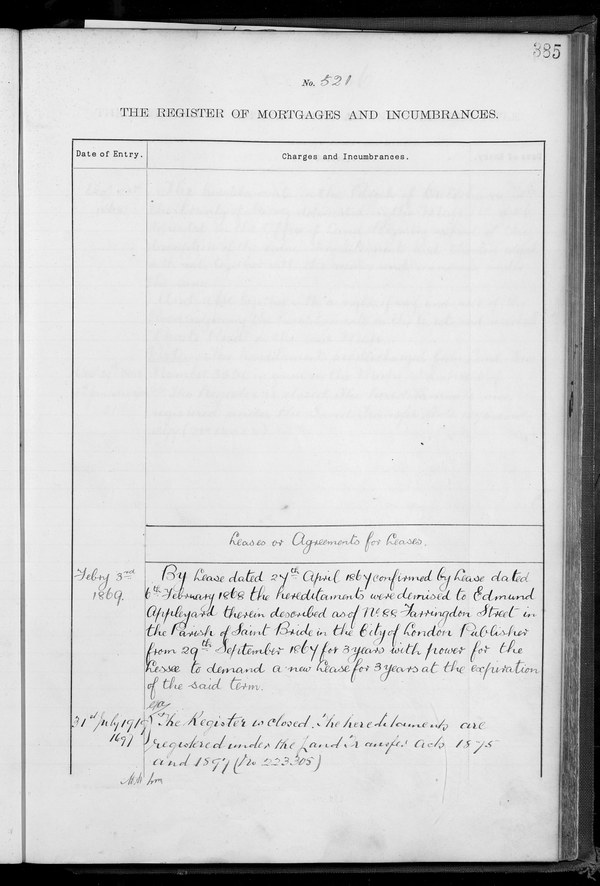 385
No. 521
THE REGISTER OF MORTGAGES AND INCUMBRANCES.
Date of Entry.
Charges and Incumbrances.
Leases or Agreements for Leases.
Febry 3rd
1869.
By Lease dated 27th April 1867 confirmed by Lease dated
6th February 1868 the hereditaments were demised to Edmund
Appleyard therein described as of No 88 Farringdon Street in
the Parish of Saint Bride in the City of London Publisher
from 29th September 1867 for 3 years with power for the
Lessee to demand a new Lease for 3 years at the expiration
of the said term.
31st July 1919
The Register is closed. The hereditaments are
registered under the Land Transfer Acts 1875
and 1897 (No 223305)